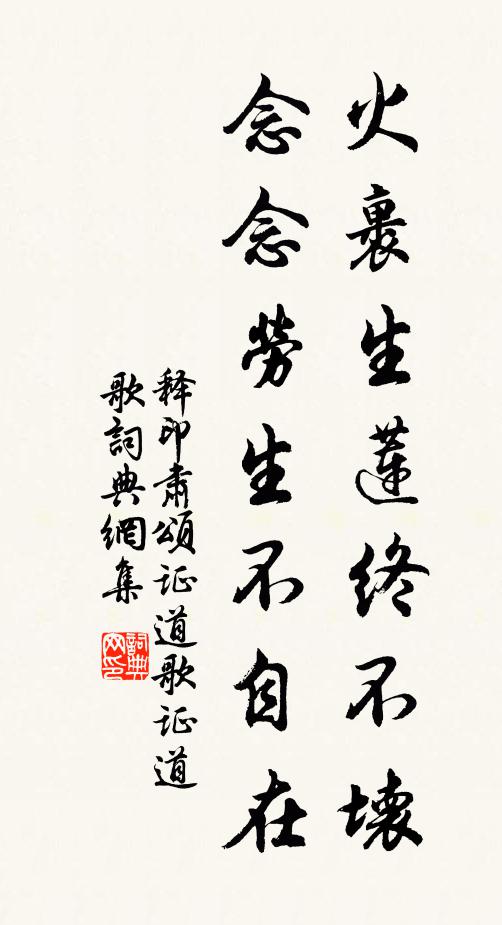 火裹生蓮終不壞
念念勞生不自在
释印肅頌证道歌证道
歌詞典網集
詞典网印